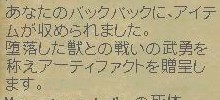 あなたのバックパックに、アイテ
ムが収められました。
堕落した獣との戦いの武勇を
称えアーティファクトを贈呈し
ます。